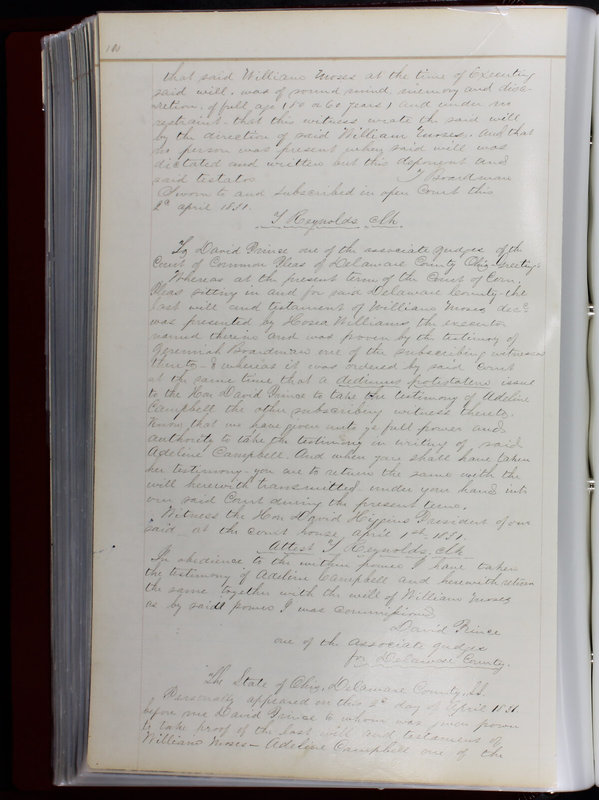 that said William Moses at the time of Executing
said will. was of sound mind memory and disc-
retion. of full age (50 or 60 years) and under no
restraint. that this witness wrote the said will
by the direction of said William Moses. And that
no person was present when said will was
dictated and written but this deponent and
said testator J Boardman
Sworn to and subscribed in open Court this
2d april 1831.
T Reynolds clk.
To David Prince one of the associate judges of the
Court of Common Pleas of Delaware County Ohio Greeting.
Whereas at the present term of the Court of Com.
Pleas sitting in and for said Delaware County the
last will and testament of William Moses decd
was presented by Hosea Williams the executor
named therein and was proven by the testimony of
Jeremiah Boardman one of the subscribing witnesses
thereto - & whereas it was ordered by said Court
at the same time that a dedimus protistatem issue
to the Hon David Prince to take the testimony of Adeline
Campbell the other subscribing witness thereto.
Know that we have given unto ye full power and
authority to take the testimony in writing of said
Adeline Campbell. And when you shall have taken
her testimony - you are to return the same with the
will herewith transmitted under your hand into
our said Court during the present term.
Witness the Hon David Higgins President of our
said at the court house april 1st 1831.
Attest T Reynolds, clk
In obedience to the within power I have taken
the testimony of Adeline Campbell and herewith return
the same together with the will of William Moses
as by said power I was commissioned
David Prince
one of the associate judges
for Delaware County.
The State of Ohio, Delaware County, SS.
Personally appeared on this 2d day of April 1831
before me David Prince to whom was given power
to take proof of the last will and testament of
William Moses - Adeline Campbell one of the